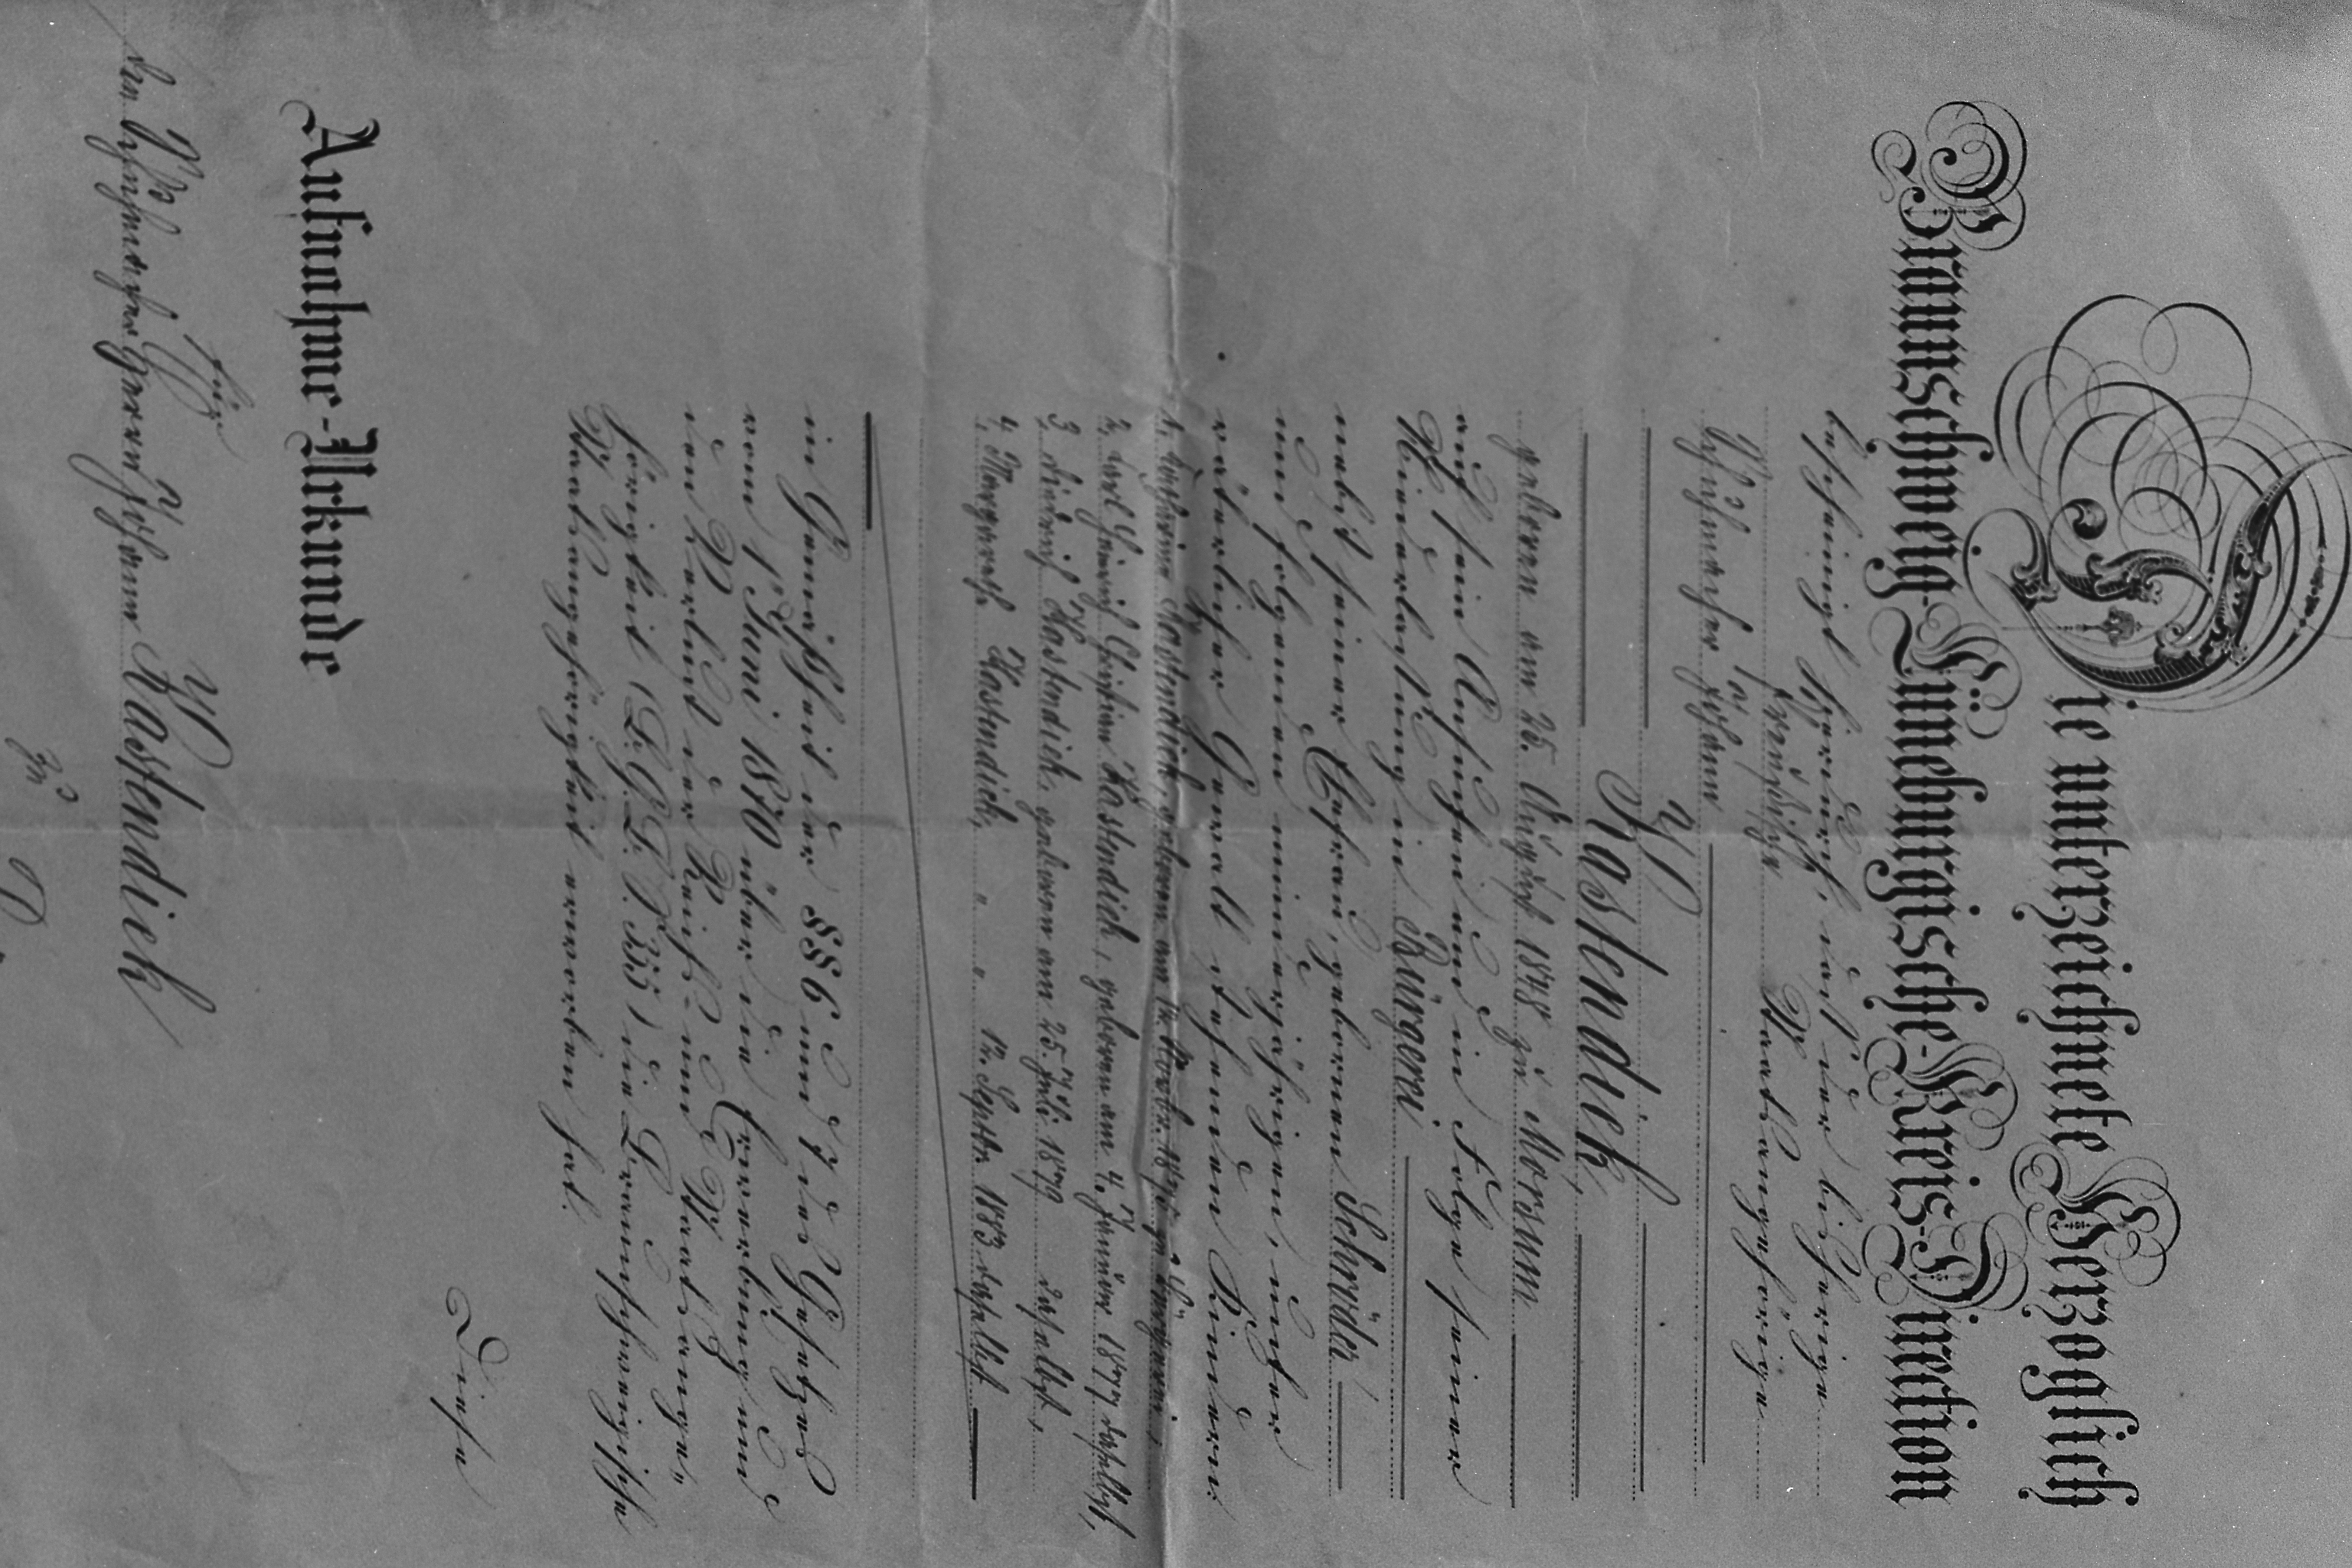 Die unterzeichnete Herzoglich
Braunschweig-Lüneburgische-Kreis-Direction
bescheinigt hierdurch, daß der bisherige
Preußische Staatsangehörige
Schuhmacher Johann
Kastendick,
geboren am 25. August 1848 zu Morsum
auf sein Ansuchen und in Folge seiner
Niederlassung in Bürgerei
nebst seiner Ehefrau, gebornen Schröder
und folgenden minderjährigen, unter
väterlicher Gewalt stehenden Kindern:
1. Kastendick, geboren am
2. Carl Heinrich Christian Kastendick, geboren am 4. Januar 1877 daselbst,
3. Diedrich Kastendick, geboren am 25. Juli 1879 daselbst,
4. Margarethe Kastendick, " " 12. Septbr. 1883 daselbst
in Gemäßheit der §§ 6 und 7 des Gesetzes
vom 1. Juni 1870 über die Erwerbung und
den Verlust der Reichs- und Staatsange-
hörigkeit (B.G.B. S. 355) die Braunschweigische
Staatsangehörigkeit erworben hat.
Diese
Aufnahme-Urkunde
für
den Schuhmacher Herrn Johann Kastendick
zu